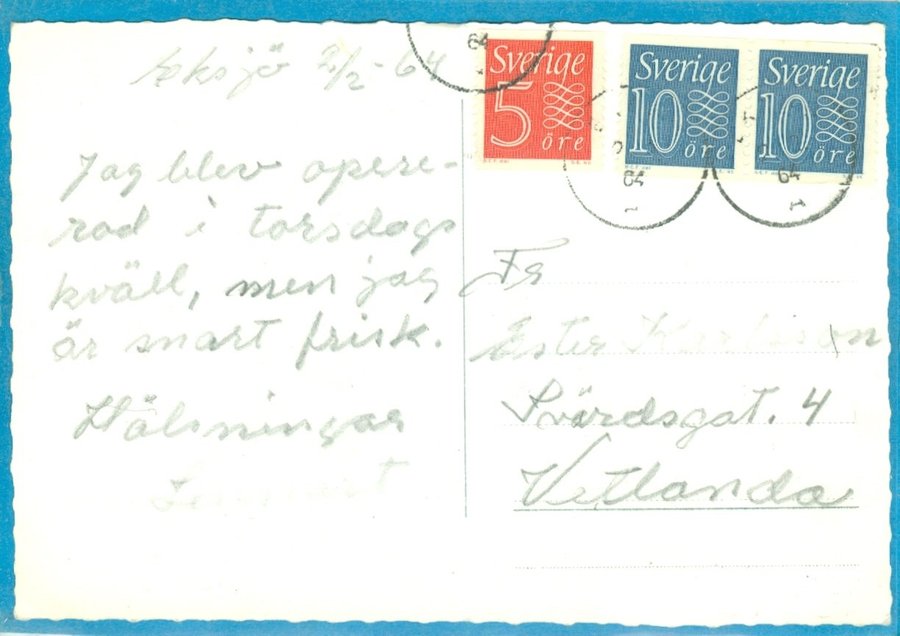 Eksjö 2/2-64
Jag blev opere-
rad i torsdags
kväll, men jag
är snart frisk.
Hälsningar
Lennart
64
Sverige
5
öre
Sverige
10
öre
Sverige
10
öre
64
1
64
1
Fr
Ester Karlsson
Svärdsgat. 4
Vetlanda